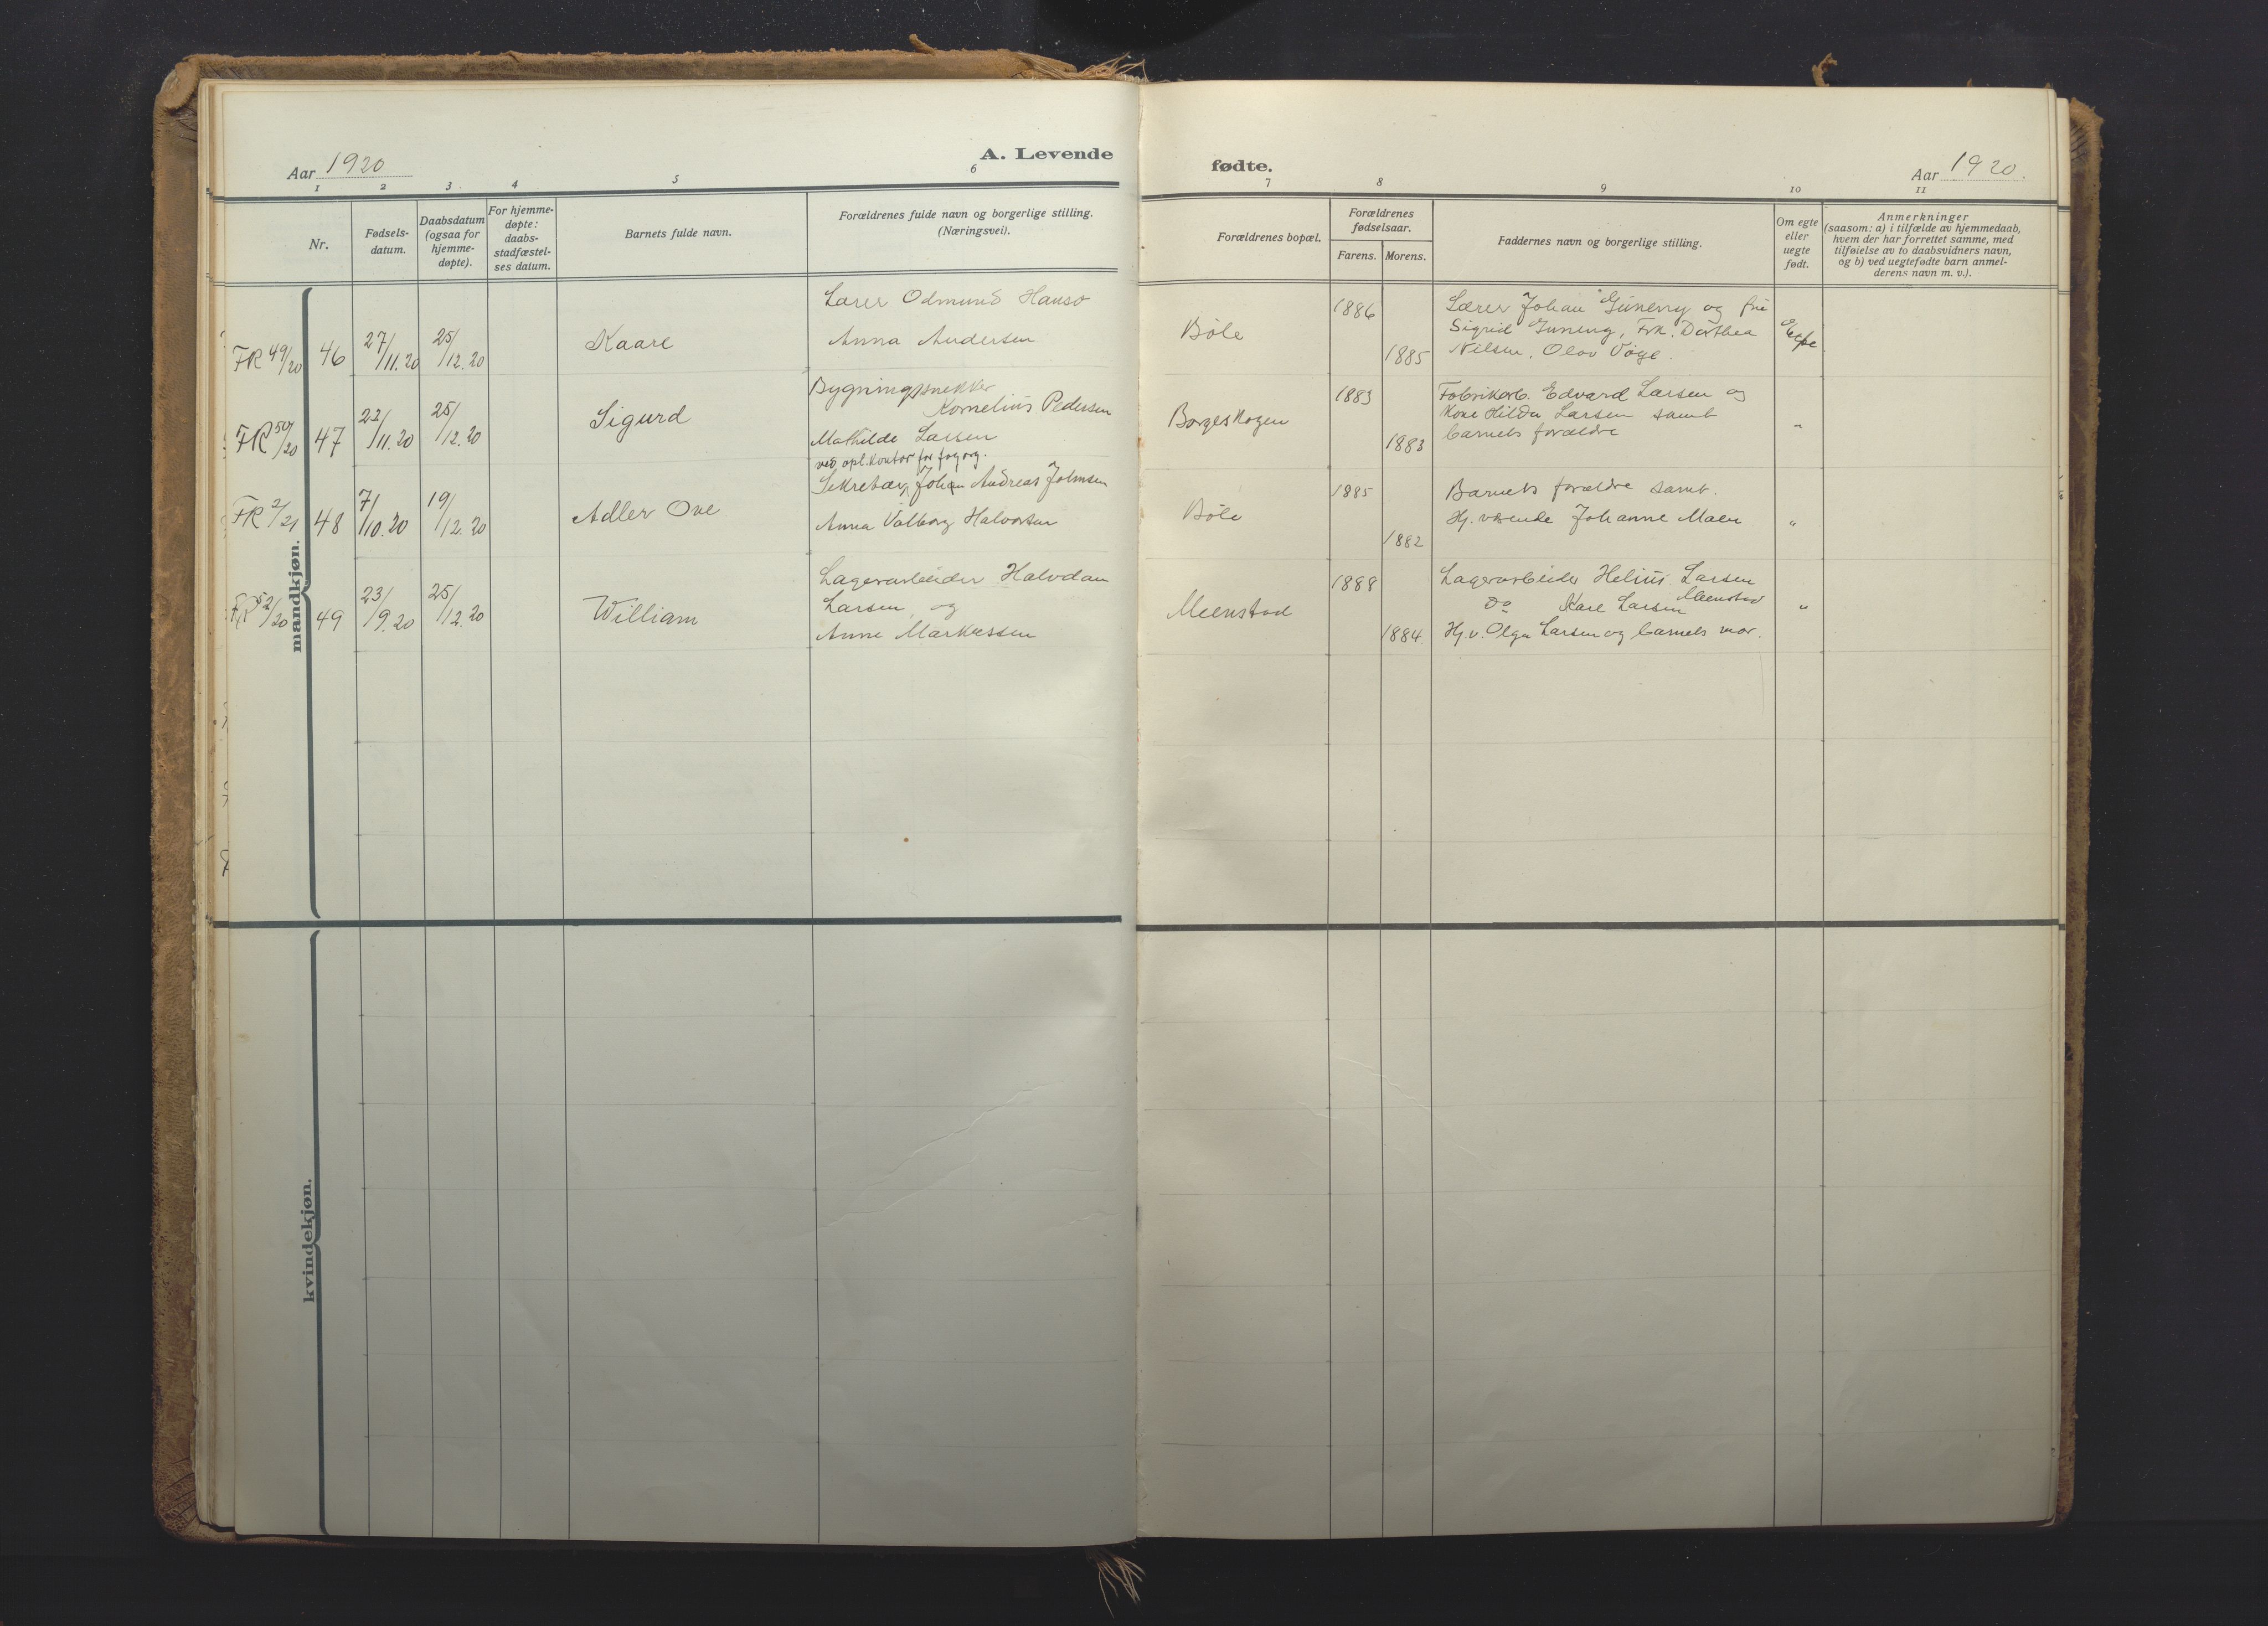 Aar 1920
A. Levende
1 2 3 4 5 6
Nr.
Fødsels-
datum.
Daabsdatum
(ogsaa for
hjemme-
døpte).
For hjemme-
døpte:
daabs-
stadfæstel-
ses datum.
Barnets fulde navn.
Forældrenes fulde navn og borgerlige stilling.
(Næringsvei).
mandkjøn.
FR 49/20 46 27/11.20 25/12.20 Kaare
Lærer Odmund Hansø
Anna Andersen
FR 50/20 47 22/11.20 25/12.20 Sigurd
Bygningssnekker
Kornelius Pedersen
Mathilde Larsen
FR 2/21 48 7/10.20 19/12.20 Adler Ove
ved opl. kontor for
Sekretær Johan Andreas Johnsen
Anna Valborg Halvorsen
FR 52/20 49 23/9.20 25/12.20 William
Lagerarbeider Halvdan
Larsen og
Anne Markussen
kvindekjøn.
fødte.
Aar 1920.
7 8 9 10 11
Forældrenes bopæl.
Forældrenes
fødselsaar.
Farens. Morens.
Faddernes navn og borgerlige stilling.
Om egte
eller
uegte
født.
Anmerkninger
(saasom: a) i tilfælde av hjemmedaab,
hvem der har forrettet samme, med
tilføielse av to daabsvidners navn,
og b) ved uegtefødte barn anmel-
derens navn m. v.).
Bøle 1886 1885
Lærer Johan Guneng og frue
Sigrid Guneng, Frk. Dorthea
Nilsen, Olav Vøge.
Egte
Borgeskogen 1883 1883
Fabrikarb. Edvard Larsen og
Kone Hilda Larsen samt
barnets forældre
"
Bøle 1885 1882
Barnets forældre samt.
Hj. værende Johanne
"
Meenstad 1888 1884.
Lagerarbeider Helius Larsen
Do Karl Larsen Meenstad
Hj. v. Olga Larsen og barnets mor.
"